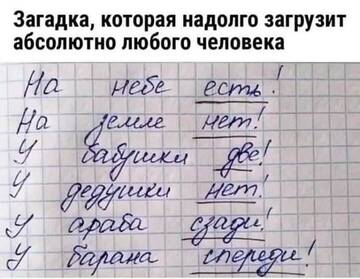 Загадка, которая надолго загрузит
абсолютно любого человека
На небе есть!
На земле нет!
У бабушки две!
У дедушки нет!
У араба сзади!
У барана спереди!